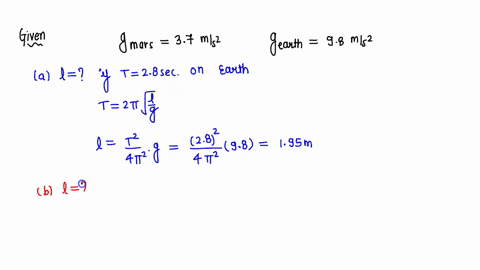 Given g mars = 3.7 m/s² g earth = 9.8 m/s²
(a) l = ? if T = 2.8 sec. on Earth
T = 2π√(l/g)
l = T²/4π² · g = (2.8)²/4π² (9.8) = 1.95 m
(b) l = ?